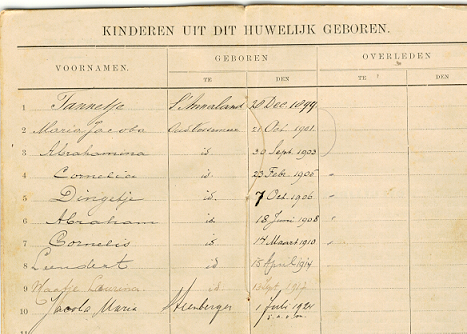 KINDEREN UIT DIT HUWELIJK GEBOREN.
VOORNAMEN. GEBOREN OVERLEDEN
TE DEN TE DEN
1 Tannetje St Annaland 28 Dec. 1899
2 Maria Jacoba Oud Vossemeer 21 Oct 1901
3 Abrahamina id 30 Sept. 1903
4 Cornelia id. 23 Febr. 1905
5 Dingetje id. 7 Oct. 1906
6 Abraham id 18 Juni 1908
7 Cornelis id 17 Maart 1910
8 Leendert id 15 April 1914
9 Laurina id Sept. 1917
10 Jacoba Maria Steenbergen 1 Juli 1921